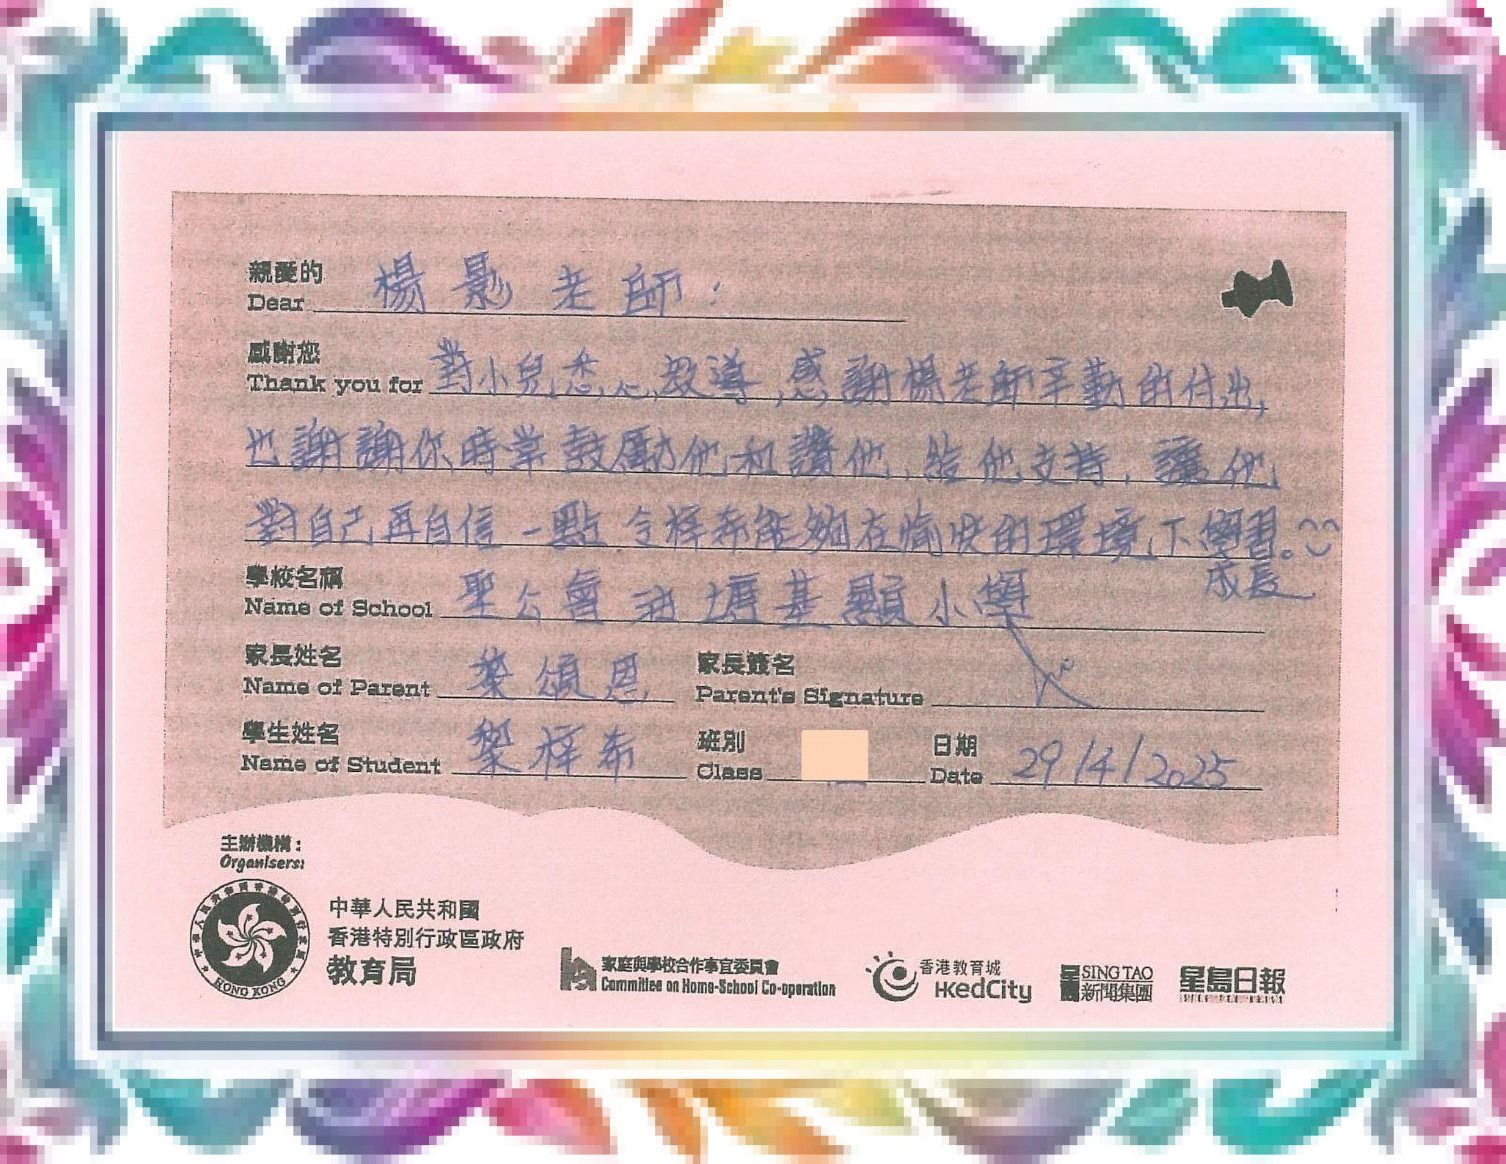 親愛的
Dear 楊影老師：
感謝您
Thank you for 對小兒悉心教導，感謝楊老師辛勤的付出，
也謝謝你時常鼓勵他和讚他，給他支持，讓他
對自己再自信一點 令梓希能夠在愉快的環境下學習。
成長
學校名稱
Name of School 聖公會油塘基顯小學
家長姓名 家長簽名
Name of Parent 黎頌恩 Parent's Signature
學生姓名 班別 日期
Name of Student 黎梓希 Class Date 29/4/2025
主辦機構：
Organisers:
中華人民共和國香港特別行政區政府
HONG KONG
中華人民共和國
香港特別行政區政府
教育局
家庭與學校合作事宜委員會
Committee on Home-School Co-operation
香港教育城
HKedCity
星島 SING TAO
新聞集團
星島日報